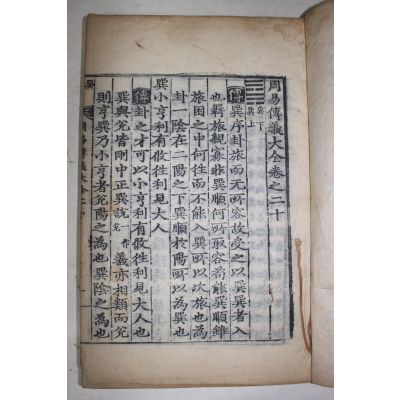 周易傳義大全卷之二十
巽下
巽上
傳巽序卦旅而无所容故受之以巽巽者入
也羇旅親寡非巽順何所取容苟能巽順雖
旅困之中何往而不能入巽所以次旅也爲
卦一陰在二陽之下巽順於陽所以爲巽也
巽小亨利有攸往利見大人
傳卦之才可以小亨利有攸往利見大人也
巽與兌皆剛中正巽說義亦相類而兌
則亨巽乃小亨者兌陽之爲也巽陰之爲也
周易傳義大全二十